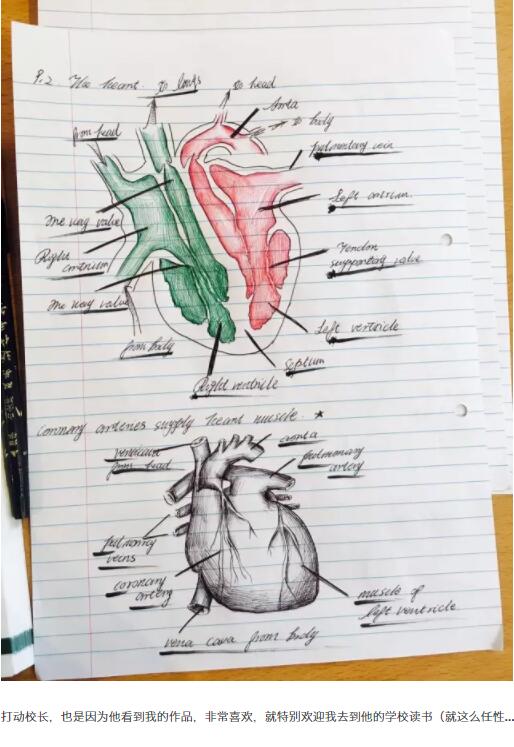 9.2 The heart.
to lungs
to head
Aorta
to body
from head
pulmonary vein
Left atrium.
One way valve
Right
atrium
Tendon
supporting valve
One way valve
Left ventricle
from body
Septum
Right ventricle
coronary arteries supply heart muscle. *
vena cava
from head
aorta
pulmonary
artery
pulmonary
veins
coronary
artery
muscle of
left ventricle
vena cava from body
打动校长，也是因为他看到我的作品，非常喜欢，就特别欢迎我去到他的学校读书（就这么任性...